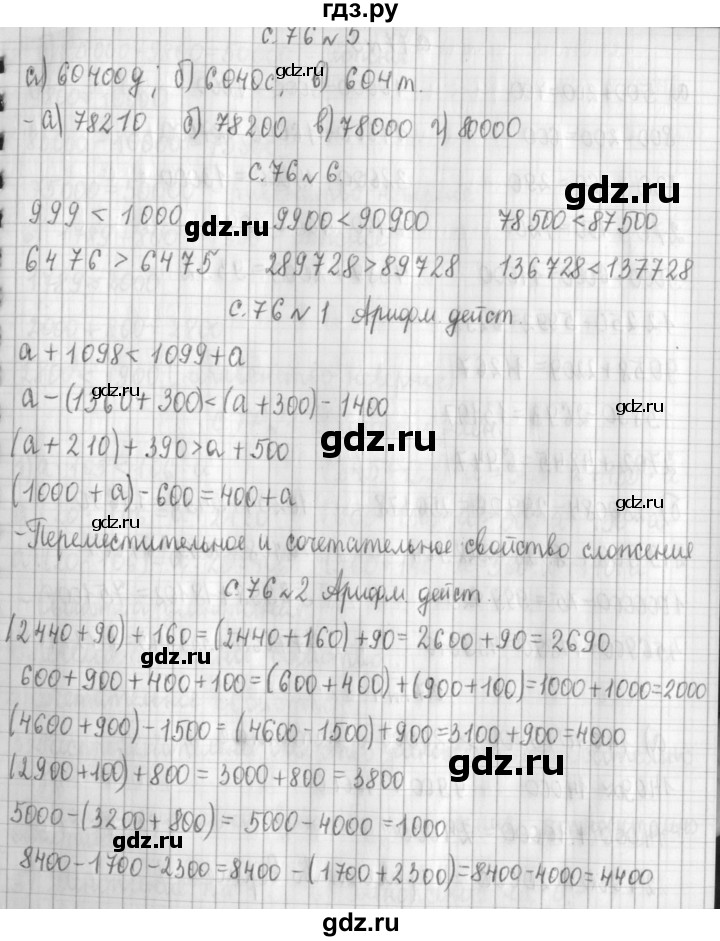 гдз.ру
с. 76 № 5.
а) 60400д; б) 6040с; в) 604 т.
- а) 78210 б) 78200 в) 78000 г) 80000
с. 76 № 6.
999 < 1000 9900 < 90900 78500 < 87500
6476 > 6475 289728 > 89728 136728 < 137728
с. 76 № 1 Арифм дейст.
a + 1098 < 1099 + a
a - (1360 + 300) < (a + 300) - 1400
(a + 210) + 390 > a + 500
(1000 + a) - 600 = 400 + a
- Переместительное и сочетательное свойство сложения
с. 76 № 2 Арифм дейст
(2440 + 90) + 160 = (2440 + 160) + 90 = 2600 + 90 = 2690
600 + 900 + 400 + 100 = (600 + 400) + (900 + 100) = 1000 + 1000 = 2000
(4600 + 900) - 1500 = (4600 - 1500) + 900 = 3100 + 900 = 4000
(2900 + 100) + 800 = 3000 + 800 = 3800
5000 - (3200 + 800) = 5000 - 4000 = 1000
8400 - 1700 - 2300 = 8400 - (1700 + 2300) = 8400 - 4000 = 4400
gdz.ru
gdz.ru
gdz.ru
gdz.ru
gdz.ru
gdz.ru
gdz.ru
gdz.ru
gdz.ru
gdz.ru
gdz.ru
gdz.ru